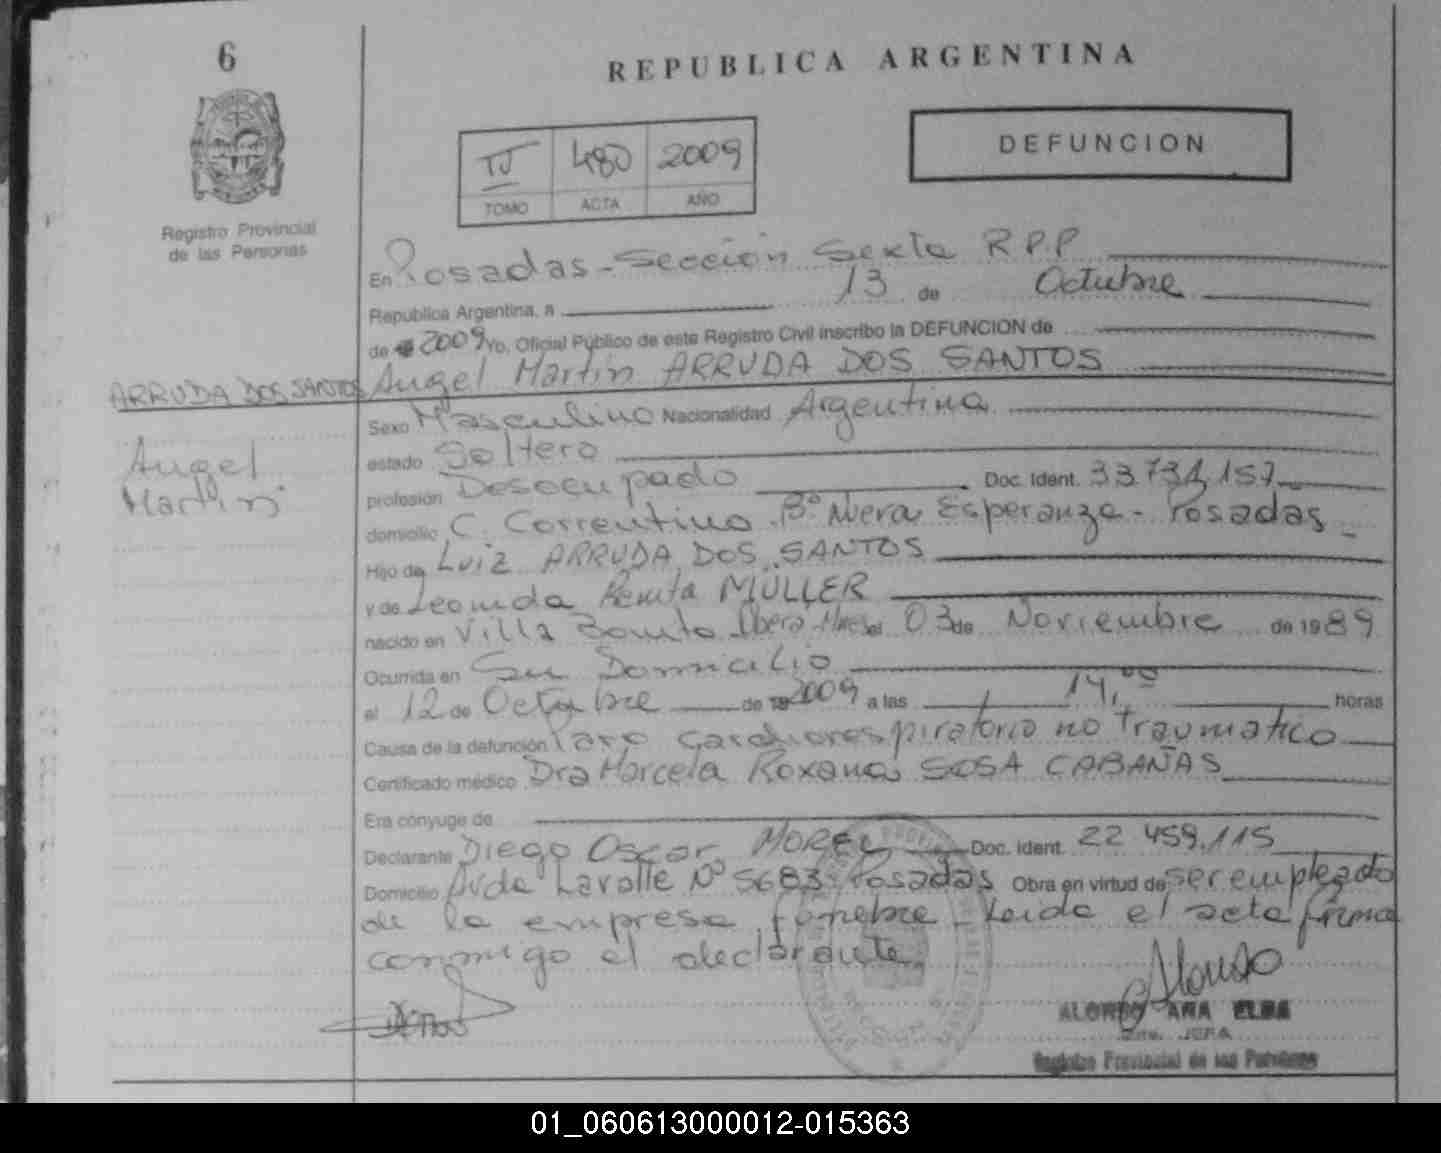 6
REPUBLICA ARGENTINA
DEFUNCION
IV 480 2009
TOMO ACTA AÑO
Registro Provincial
de las Personas
En Posadas - Sección Sexta R.P.P
Republica Argentina, a 13 de Octubre
de 2009 Yo, Oficial Público de este Registro Civil inscribo la DEFUNCION de
ARRUDA DOS SANTOS Angel Martín ARRUDA DOS SANTOS
Angel
Martín
Sexo Masculino Nacionalidad Argentina
estado Soltero
profesión Desocupado Doc. Ident. 33.731.157
domicilio C. Correntino Bº Nueva Esperanza - Posadas
Hijo de Luiz ARRUDA DOS SANTOS
y de Leonida MULLER
nacido en Villa Bonita el 03 de Noviembre de 1989
Ocurrida en Su Domicilio
el 12 de Octubre de 2009 a las 14,00 horas
Causa de la defunción Paro cardiorespiratorio no traumatico
Certificado médico Dra Marcela Roxana SOSA CABAÑAS
Era cónyuge de
Declarante Diego Oscar MOREL Doc. Ident. 22.459.115
Domicilio Avda Lavalle Nº 5683 - Posadas Obra en virtud de ser empleado
de la empresa fúnebre - Leida el acta firma
conmigo el declarante.
Alonso
ALONSO ANA ELBA
JEFA
Registro Provincial de las Personas
01_060613000012-015363